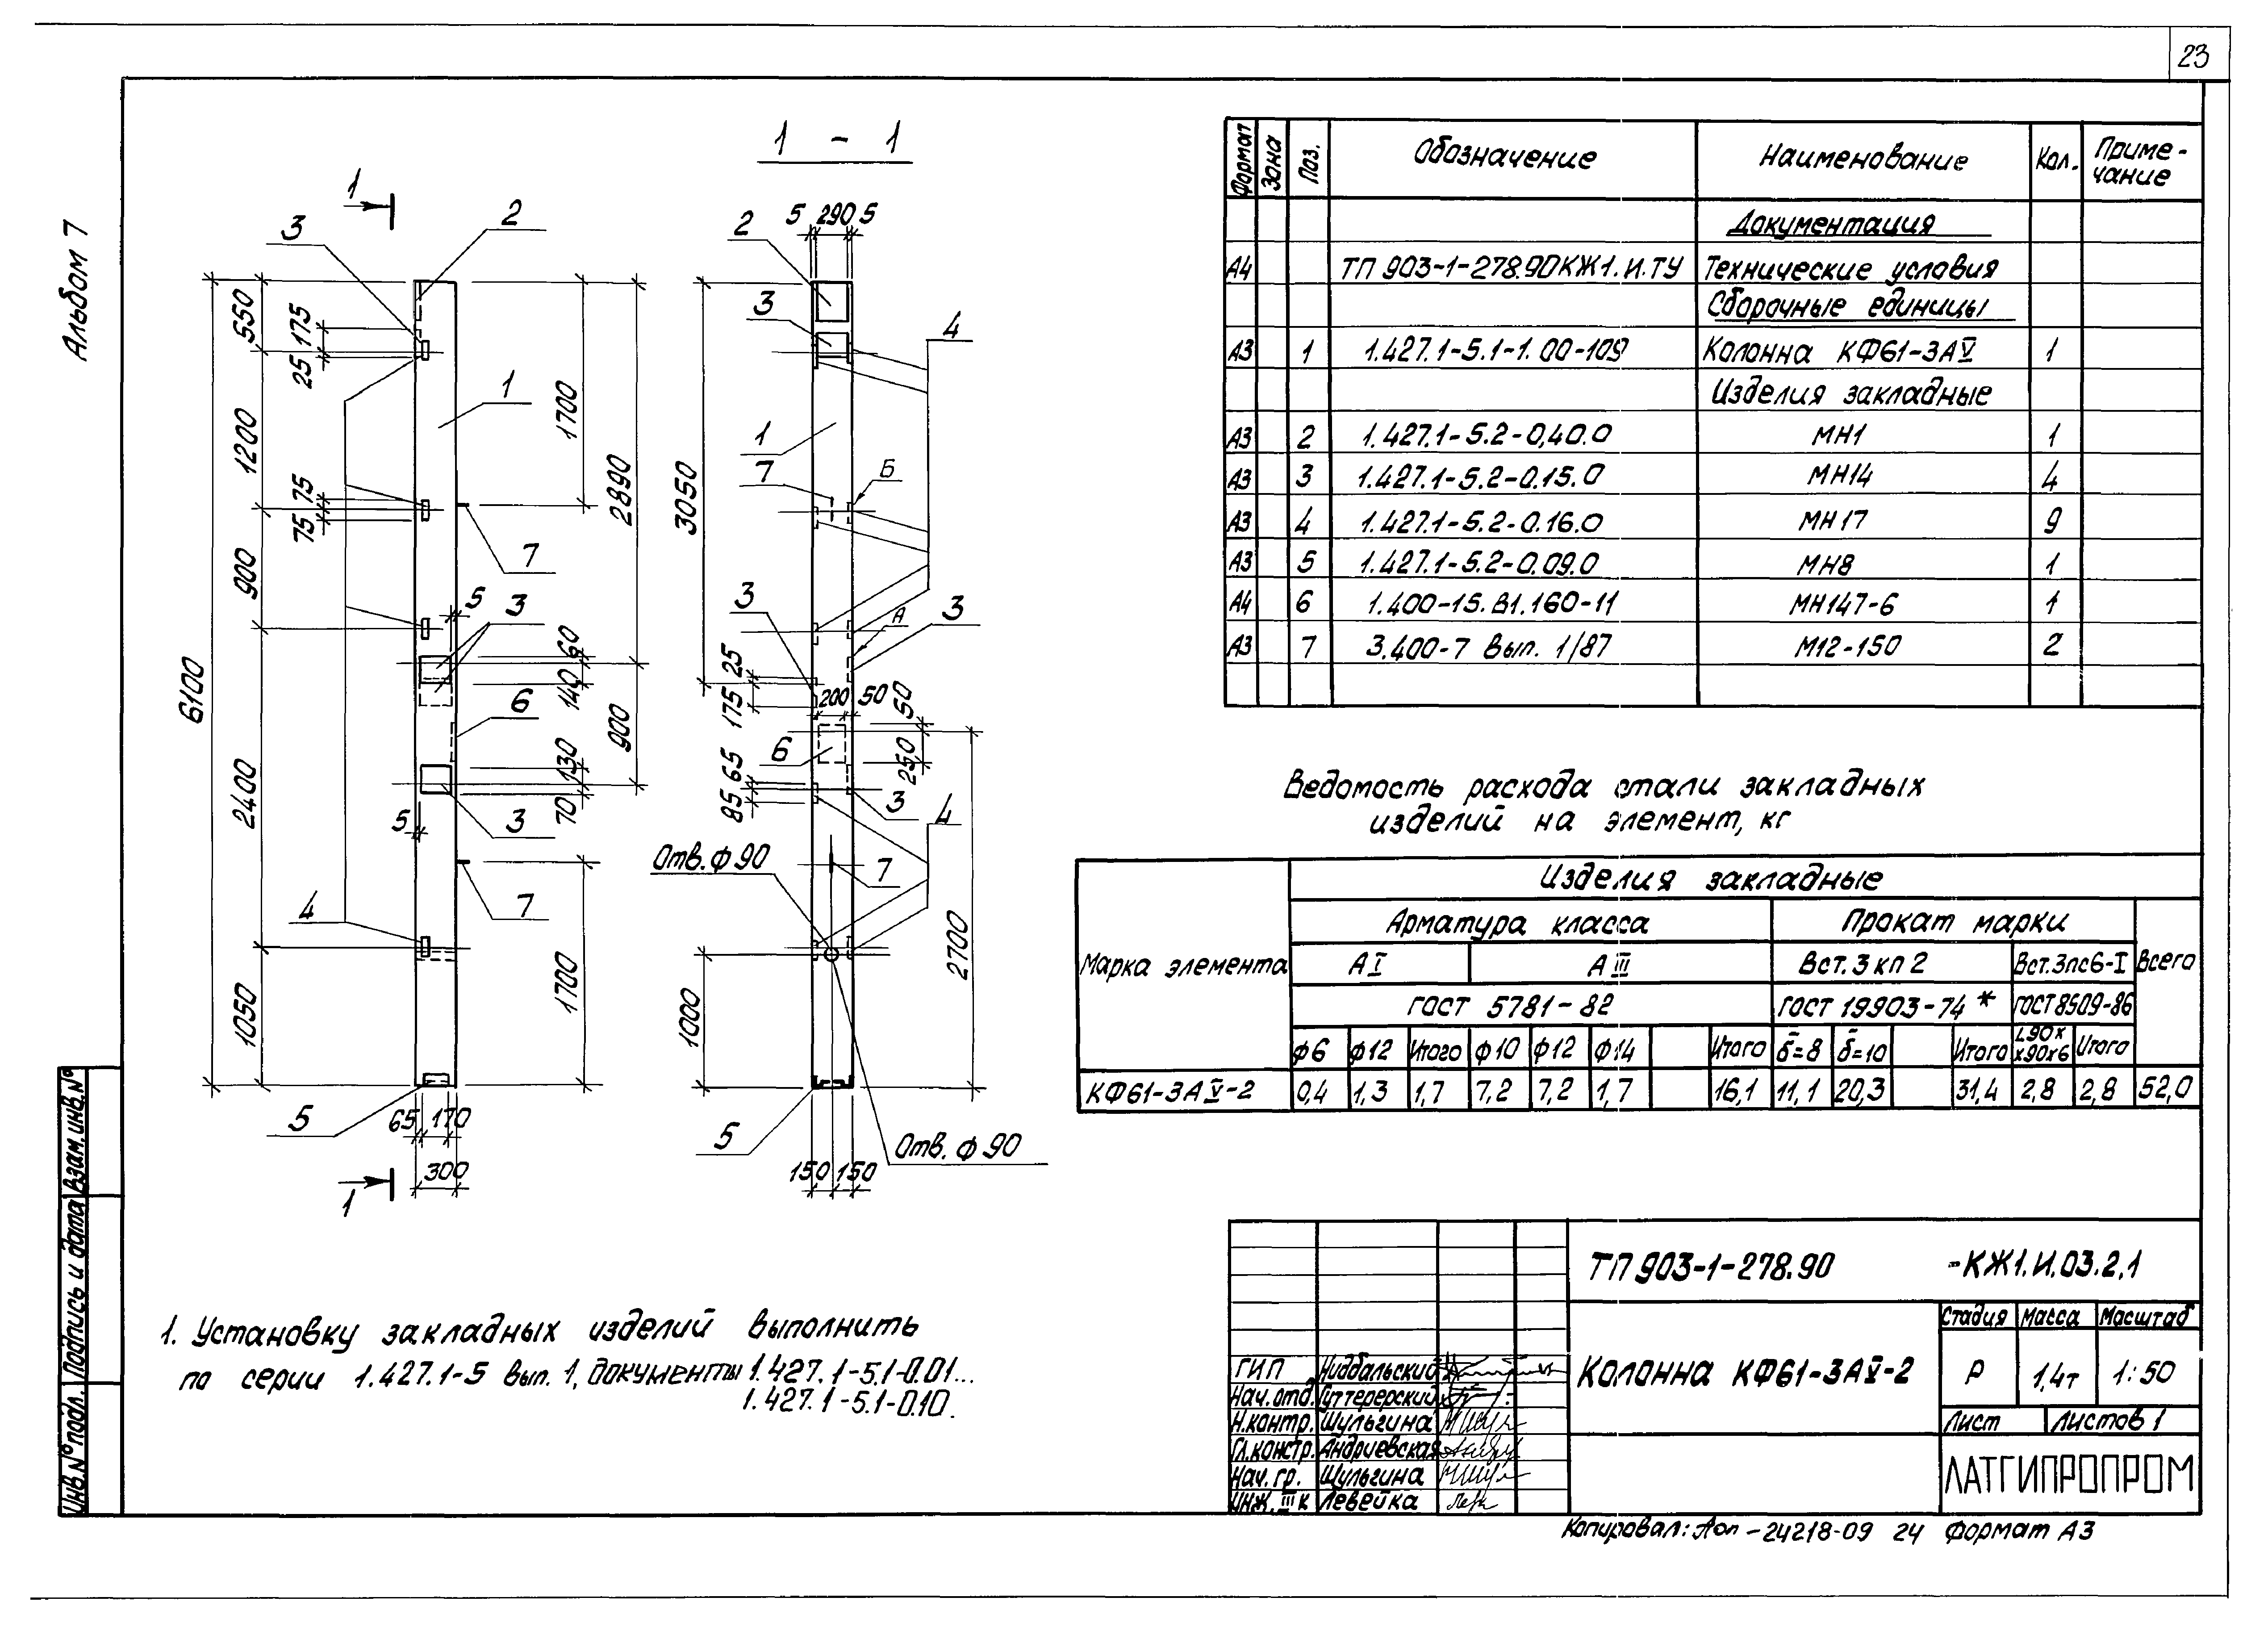 23
Альбом 7
1 - 1
1
2
3
6100
550
175
25
1200
75
75
900
2400
1050
4
1
1700
2890
7
5
3
60
140
6
900
130
70
5
3
7
1700
5
65
170
300
1
5 290 5
2
3
4
1
7
Б
3050
3
А
3
25
175
200 50
50
250
6
65
85
3
4
Отв. ф 90
7
2700
1000
5
150 150
Отв. ф 90
Формат Зона Поз. Обозначение Наименование Кол. Приме-
чание
Документация
А4 ТП 903-1-278.90КЖ1.И.ТУ Технические условия
Сборочные единицы
А3 1 1.427.1-5.1-1.00-109 Колонна КФ61-3АV 1
Изделия закладные
А3 2 1.427.1-5.2-0,40.0 МН1 1
А3 3 1.427.1-5.2-0.15.0 МН14 4
А3 4 1.427.1-5.2-0.16.0 МН17 9
А3 5 1.427.1-5.2-0.09.0 МН8 1
А4 6 1.400-15.В1.160-11 МН147-6 1
А3 7 3.400-7 Вып. 1/87 М12-150 2
Ведомость расхода стали закладных
изделий на элемент, кг
Марка элемента Изделия закладные
Арматура класса Прокат марки Всего
АI АIII Вст.3 кп 2 Вст.3пс6-I
ГОСТ 5781-82 ГОСТ 19903-74* ГОСТ 8509-86
ф6 ф12 Итого ф10 ф12 ф14 Итого δ=8 δ=10 Итого L90х
х90х6 Итого
КФ61-3АV-2 0,4 1,3 1,7 7,2 7,2 1,7 16,1 11,1 20,3 31,4 2,8 2,8 52,0
1. Установку закладных изделий выполнить
по серии 1.427.1-5 вып. 1, документы 1.427.1-5.1-0.01...
1.427.1-5.1-0.10.
Инв.№ подл. Подпись и дата Взам.инв.№
ТП 903-1-278.90 -КЖ1.И.03.2.1
Колонна КФ61-3АV-2
Стадия Масса Масштаб
Р 1,4т 1:50
Лист Листов 1
ЛАТГИПРОПРОМ
ГИП Ниддальский
Нач.отд. Гуттерерский
Н.контр. Шульгина
Гл.констр. Андриевская
Нач.гр. Шульгина
Инж.III к Левейка
Копировал: -24218-09 24 Формат А3